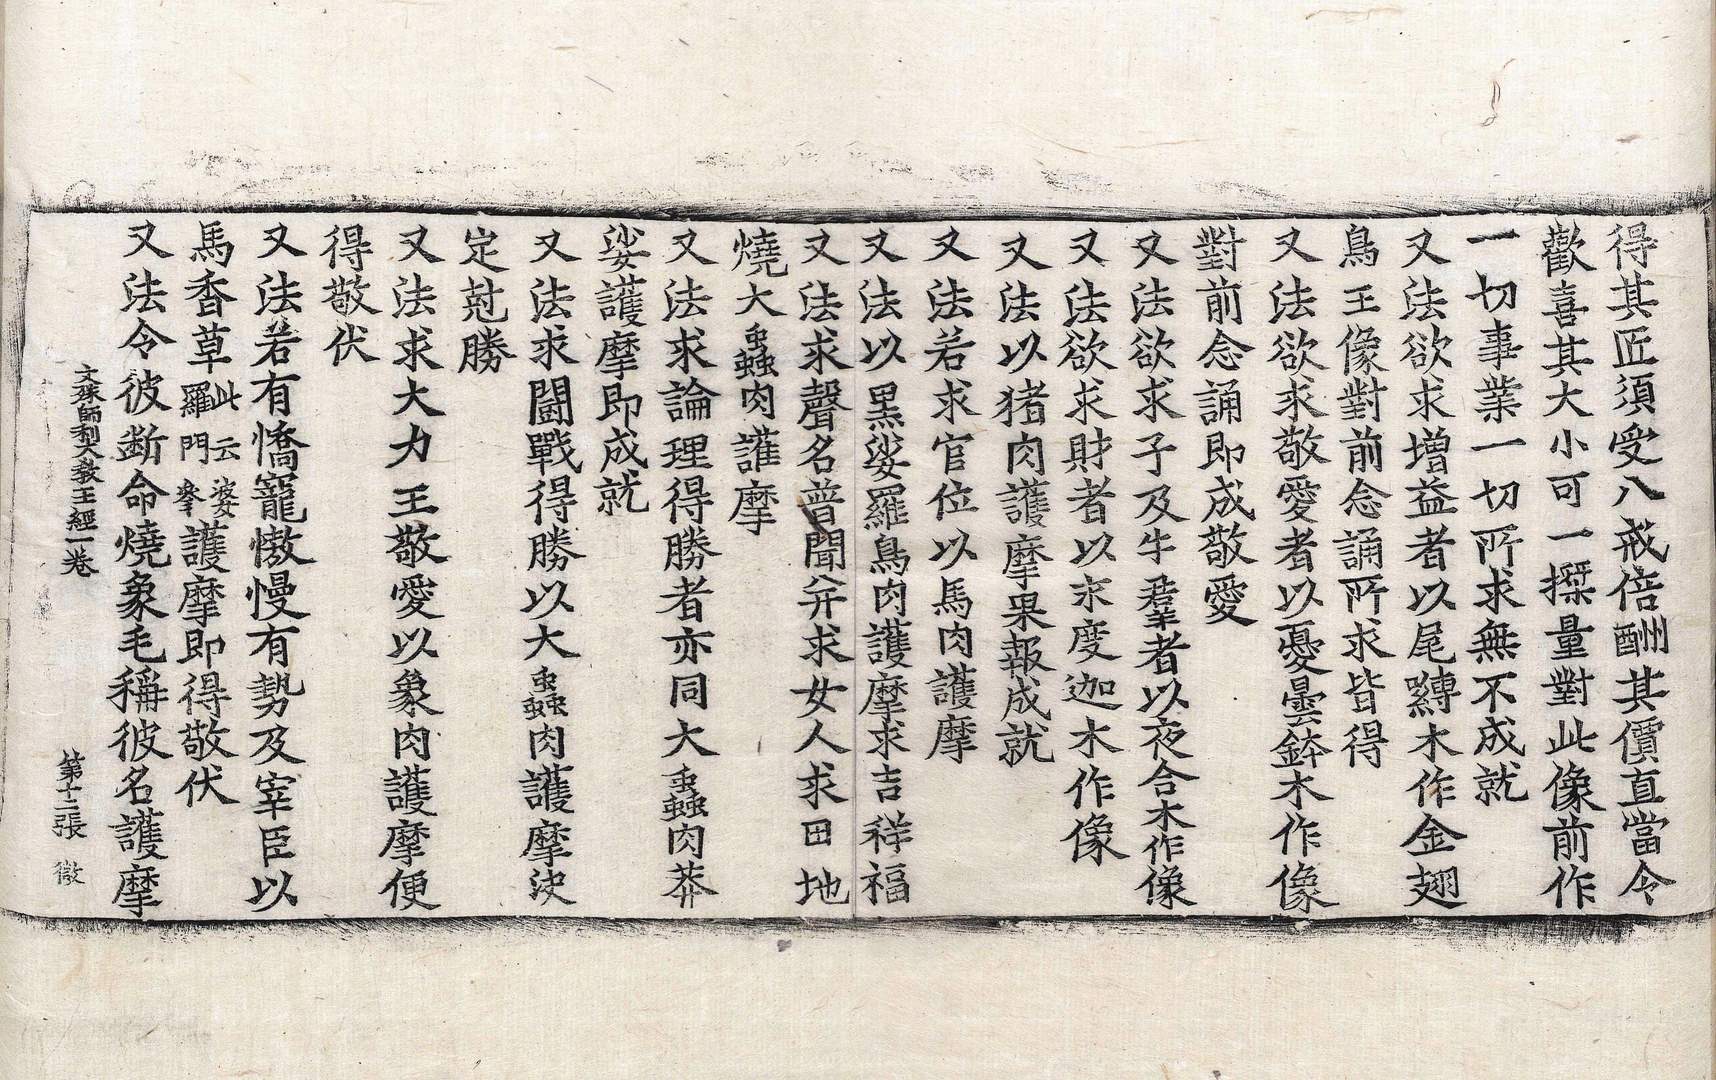 得其匠須受八戒倍酬其價直當令
歡喜其大小可一搩量對此像前作
一切事業一切所求無不成就
又法欲求增益者以尾䌸木作金翅
鳥王像對前念誦所求皆得
又法欲求敬愛者以憂曇鉢木作像
對前念誦即成敬愛
又法欲求子及牛群者以夜合木作像
又法欲求財者以末度迦木作像
又法以猪肉護摩果報成就
又法若求官位以馬肉護摩
又法以黑娑羅鳥肉護摩求吉祥福
又法求聲名普聞并求女人求田地
燒大蟲肉護摩
又法求論理得勝者亦同大蟲肉莽
娑護摩即成就
又法求鬪戰得勝以大蟲肉護摩決
定尅勝
又法求大力王敬愛以象肉護摩便
得敬伏
又法若有憍寵慠慢有勢及宰臣以
馬香草此云婆羅門參護摩即得敬伏
又法令彼断命燒象毛稱彼名護摩
文殊師利大教王經一卷 第十二張 徵